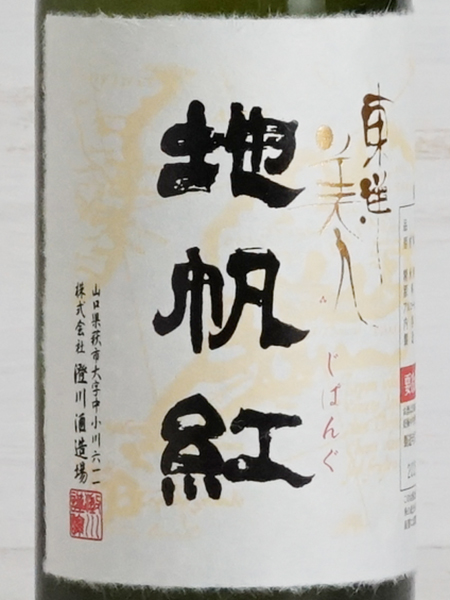 東洋美人
じぱんぐ
地帆紅
山口県萩市大字中小川六一一
株式会社 澄川酒造場